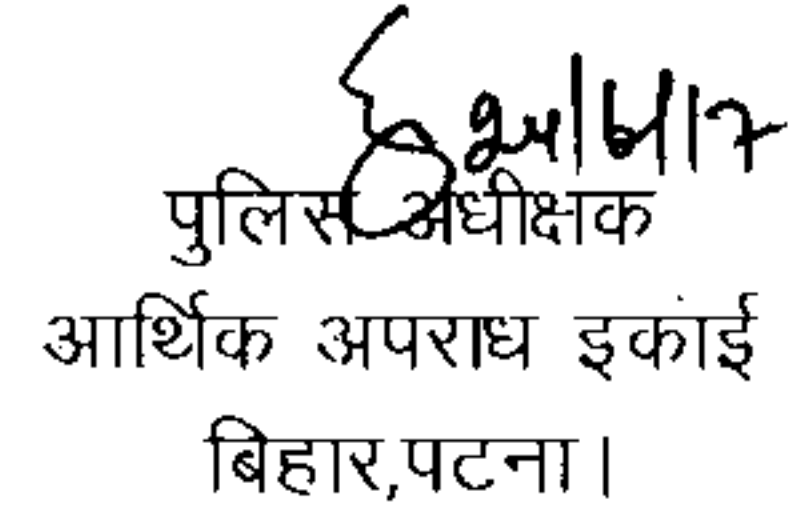 पुलिस अधीक्षक
आर्थिक अपराध इकाई
बिहार,पटना।